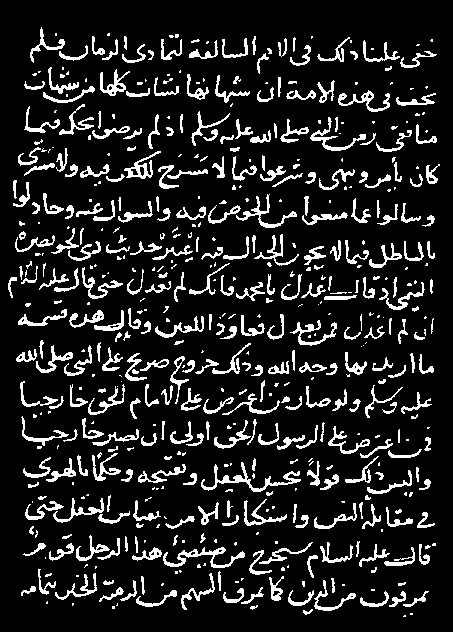 خفي علينا ذلك في الامم السالفة لتمادي الزمان فلم
يخف في هذه الامة ان شبهاتها نشات كلها من شبهات
منافقي زمن النبي صلى الله عليه وسلم اذ لم يرضوا بحكمه فيما
كان يأمر وينهى وشرعوا فيما لا مسرح للفكر فيه ولا مسرى
وسالوا عما منعوا من الخوض فيه والسوال عنه وجادلوا
بالباطل فيما لا يجوز الجدال فيه اعتبر حديث ذي الخويصرة
التميمي اذ قال اعدل يا محمد فانك لم تعدل حتى قال عليه السلام
ان لم اعدل فمن يعدل فعاود اللعين وقال هذه قسمة
ما اريد بها وجه الله وذلك خروج صريح على النبي صلى الله
عليه وسلم ولو صار من اعترض على الامام الحق خارجيا
فمن اعترض على الرسول الحق اولى ان يصير خارجيا
واليس ذلك قولا بتحسين العقل وتقبيحه وحكما بالهوى
في مقابلة النص واستكبارا لامر بقياس العقل حتى
قال عليه السلام سيخرج من ضئضئ هذا الرجل قوم
يمرقون من الدين كما يمرق السهم من الرمية الخبر بتمامه